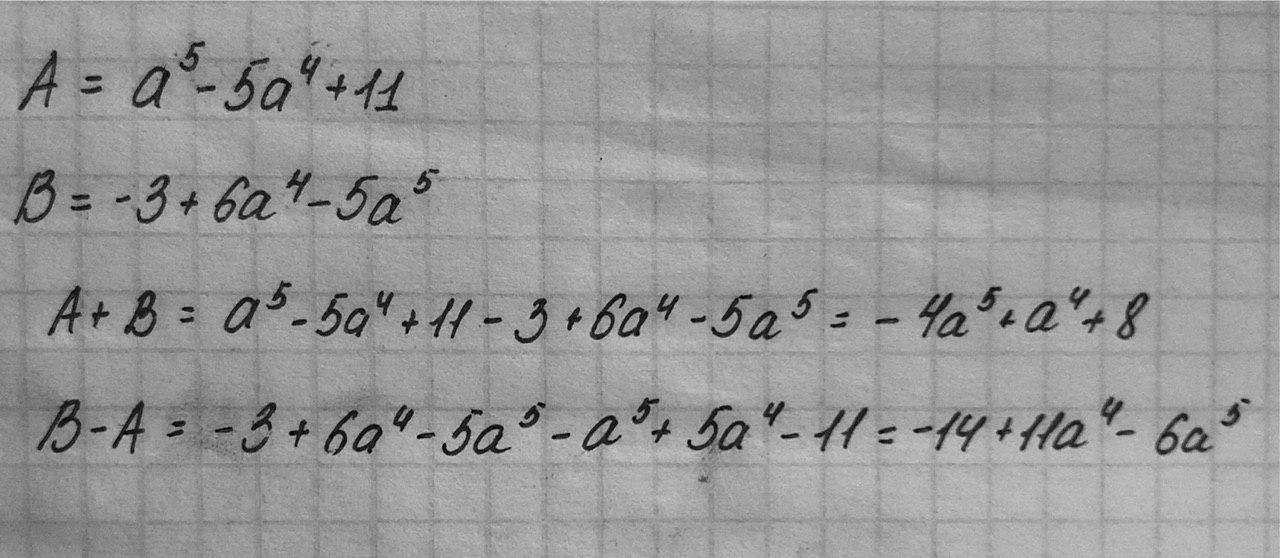 A = a⁵ - 5a⁴ + 11
B = -3 + 6a⁴ - 5a⁵
A + B = a⁵ - 5a⁴ + 11 - 3 + 6a⁴ - 5a⁵ = -4a⁵ + a⁴ + 8
B - A = -3 + 6a⁴ - 5a⁵ - a⁵ + 5a⁴ - 11 = -14 + 11a⁴ - 6a⁵